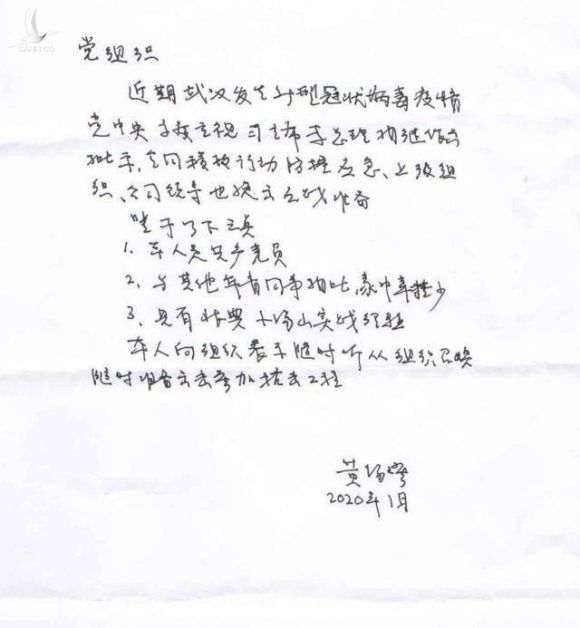 党组织
近期武汉发生新型冠状病毒疫情
党中央高度重视 习主席李总理相继作出
批示,全国积极行动 防控应急、上级组
织、公司领导也随之应战准备
鉴于以下三点
1. 本人是共产党员
2. 与其他年青同事相比,家中牵挂少
3. 具有 小汤山实战经验
本人向组织表示随时听从组织召唤
随时准备 去参加抗击工程
黄
2020年1月